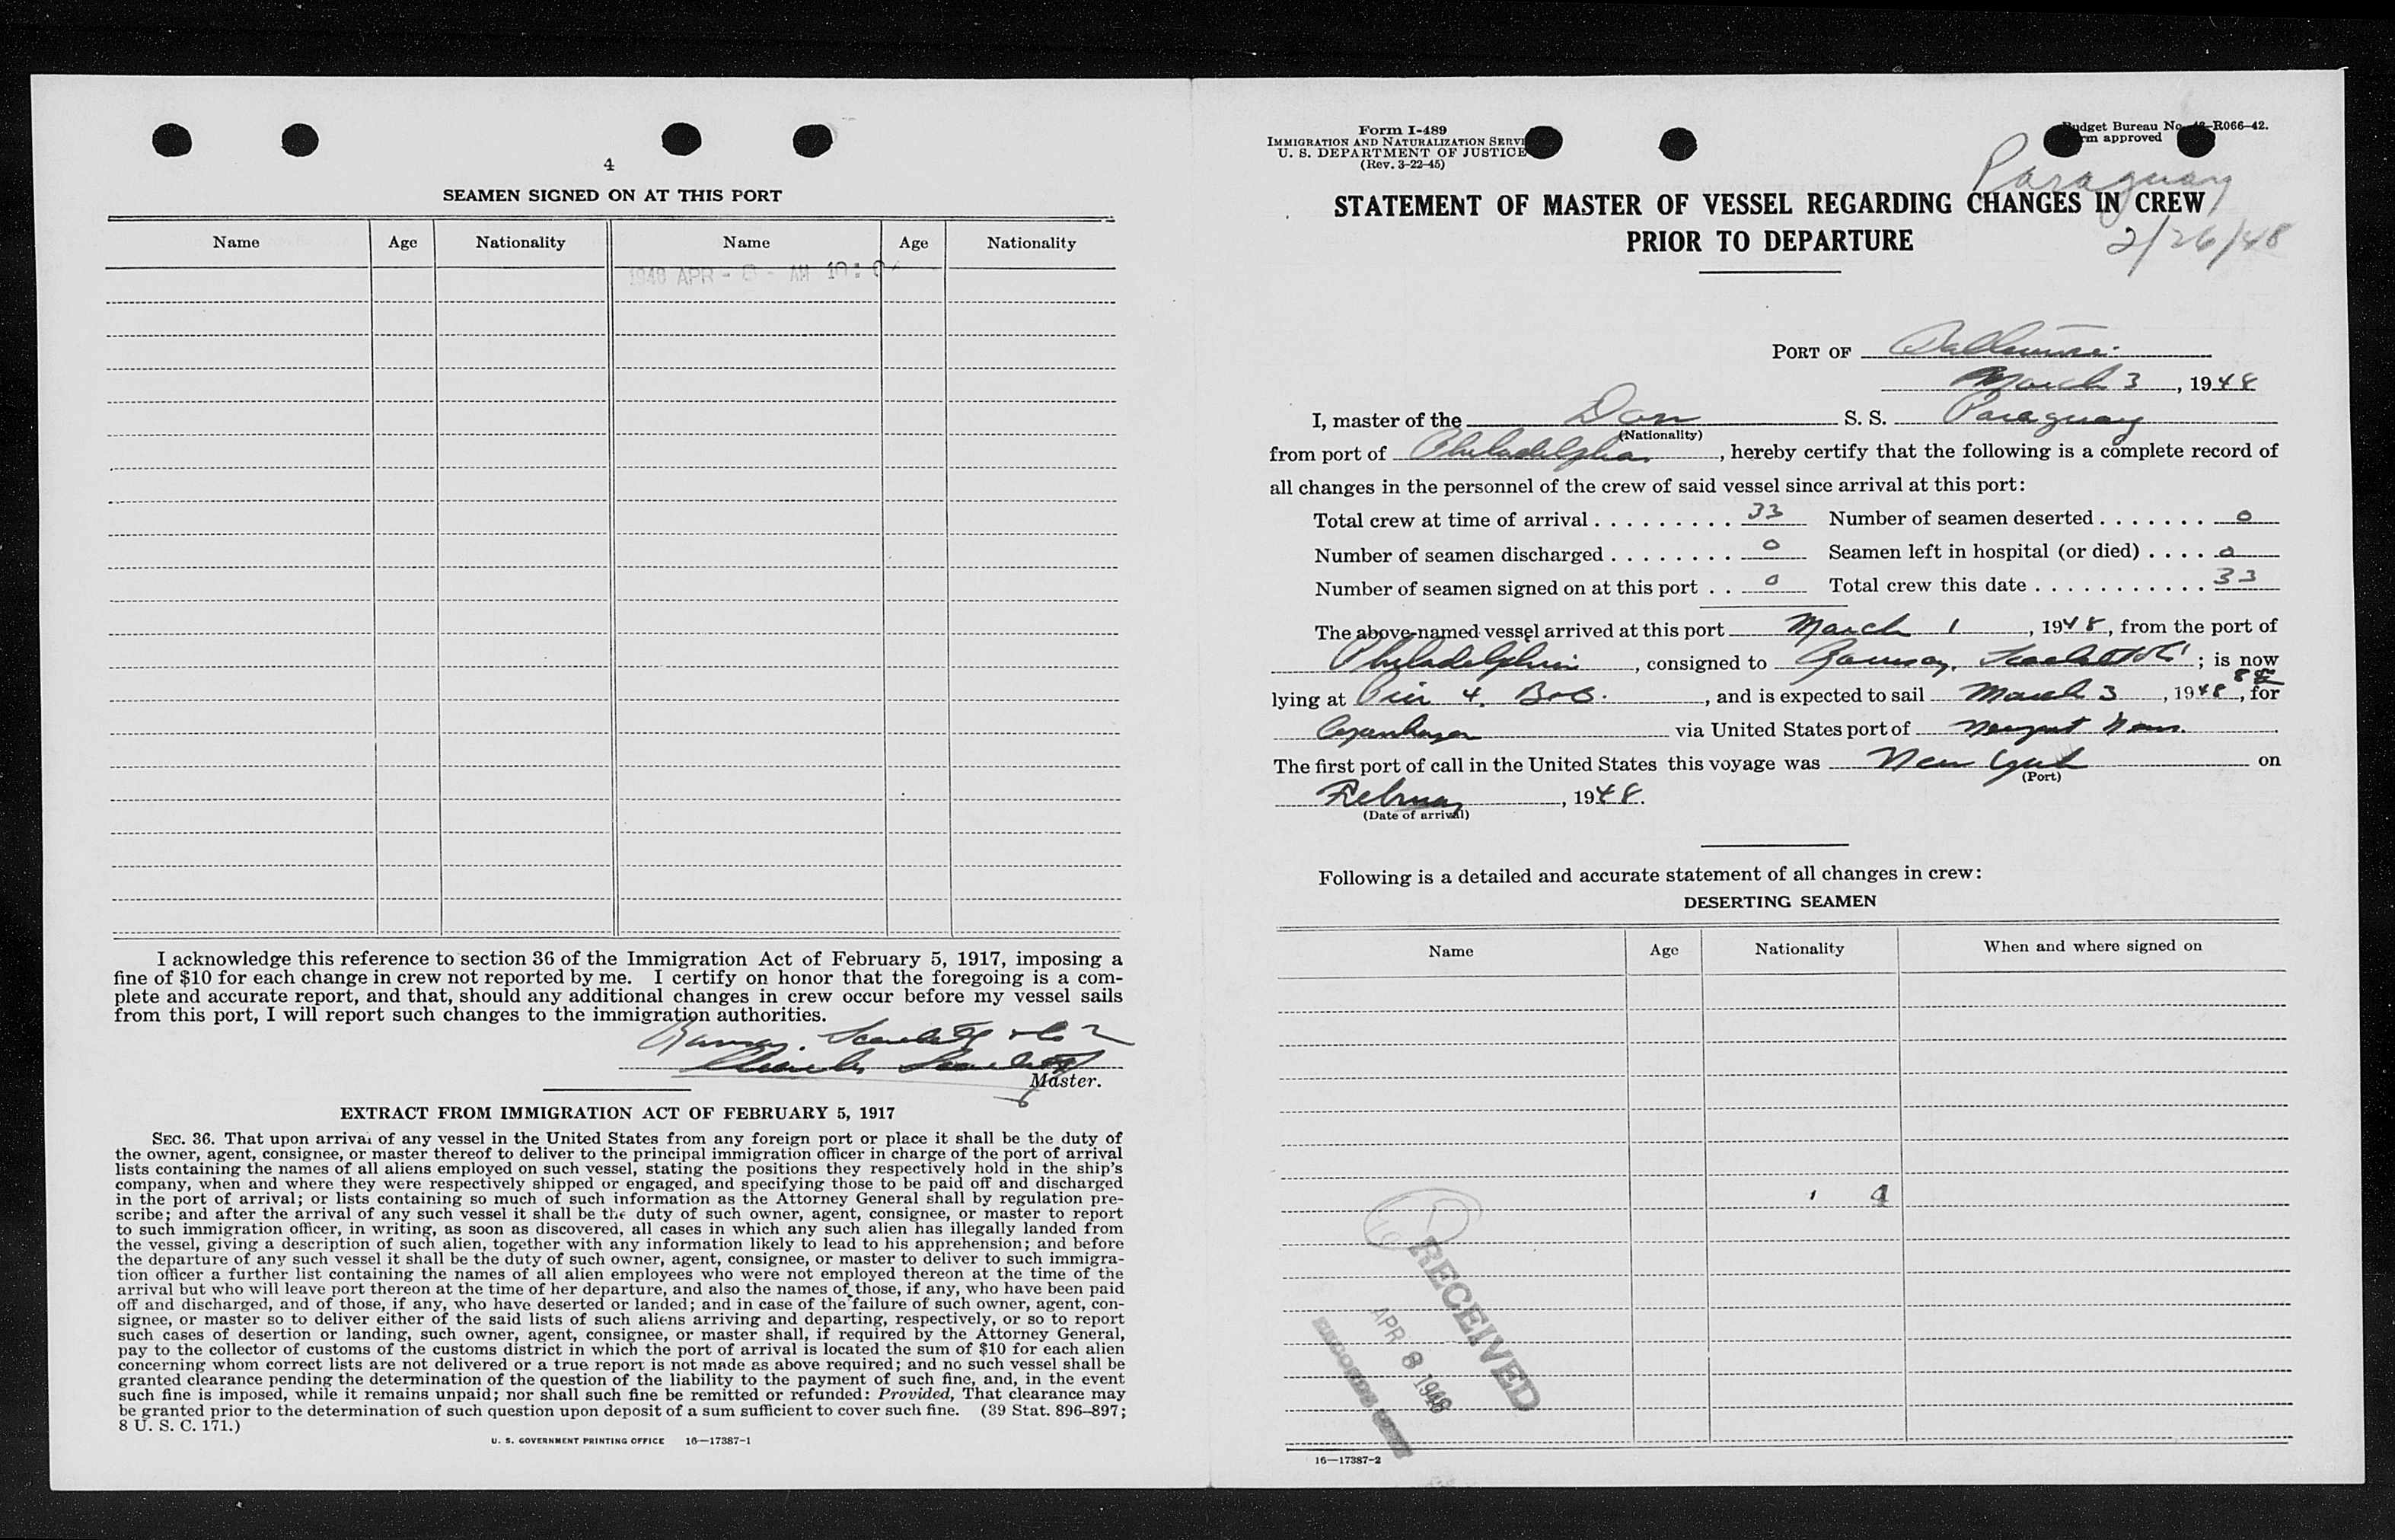 4
SEAMEN SIGNED ON AT THIS PORT
Name Age Nationality Name Age Nationality
APR AM
I acknowledge this reference to section 36 of the Immigration Act of February 5, 1917, imposing a
fine of $10 for each change in crew not reported by me. I certify on honor that the foregoing is a com-
plete and accurate report, and that, should any additional changes in crew occur before my vessel sails
from this port, I will report such changes to the immigration authorities.
Ramsay, Scarlett & Co
Charles Scarlett
Master.
EXTRACT FROM IMMIGRATION ACT OF FEBRUARY 5, 1917
SEC. 36. That upon arrival of any vessel in the United States from any foreign port or place it shall be the duty of
the owner, agent, consignee, or master thereof to deliver to the principal immigration officer in charge of the port of arrival
lists containing the names of all aliens employed on such vessel, stating the positions they respectively hold in the ship's
company, when and where they were respectively shipped or engaged, and specifying those to be paid off and discharged
in the port of arrival; or lists containing so much of such information as the Attorney General shall by regulation pre-
scribe; and after the arrival of any such vessel it shall be the duty of such owner, agent, consignee, or master to report
to such immigration officer, in writing, as soon as discovered, all cases in which any such alien has illegally landed from
the vessel, giving a description of such alien, together with any information likely to lead to his apprehension; and before
the departure of any such vessel it shall be the duty of such owner, agent, consignee, or master to deliver to such immigra-
tion officer a further list containing the names of all alien employees who were not employed thereon at the time of the
arrival but who will leave port thereon at the time of her departure, and also the names of those, if any, who have been paid
off and discharged, and of those, if any, who have deserted or landed; and in case of the failure of such owner, agent, con-
signee, or master so to deliver either of the said lists of such aliens arriving and departing, respectively, or so to report
such cases of desertion or landing, such owner, agent, consignee, or master shall, if required by the Attorney General,
pay to the collector of customs of the customs district in which the port of arrival is located the sum of $10 for each alien
concerning whom correct lists are not delivered or a true report is not made as above required; and no such vessel shall be
granted clearance pending the determination of the question of the liability to the payment of such fine, and, in the event
such fine is imposed, while it remains unpaid; nor shall such fine be remitted or refunded: Provided, That clearance may
be granted prior to the determination of such question upon deposit of a sum sufficient to cover such fine. (39 Stat. 896–897;
8 U. S. C. 171.)
U. S. GOVERNMENT PRINTING OFFICE 16—17387-1
Form I-489
IMMIGRATION AND NATURALIZATION
U. S. DEPARTMENT OF JUSTICE
(Rev. 3-22-45)
Budget Bureau No. R066–42.
approved
Paraguay
2/26/48
STATEMENT OF MASTER OF VESSEL REGARDING CHANGES IN CREW
PRIOR TO DEPARTURE
PORT OF Baltimore
March 3, 1948
I, master of the Dan S. S. Paraguay
(Nationality)
from port of Philadelphia, hereby certify that the following is a complete record of
all changes in the personnel of the crew of said vessel since arrival at this port:
Total crew at time of arrival 33 Number of seamen deserted 0
Number of seamen discharged 0 Seamen left in hospital (or died) 0
Number of seamen signed on at this port 0 Total crew this date 33
The above-named vessel arrived at this port March 1, 1948, from the port of
Philadelphia, consigned to Ramsay, Scarlett & Co; is now
lying at Pier 4. B&O., and is expected to sail March 3, 1948, for
Copenhagen via United States port of Newport News.
The first port of call in the United States this voyage was New York on
(Port)
February, 1948.
(Date of arrival)
Following is a detailed and accurate statement of all changes in crew:
DESERTING SEAMEN
Name Age Nationality When and where signed on
4
RECEIVED
APR 8 1948
16—17387-2